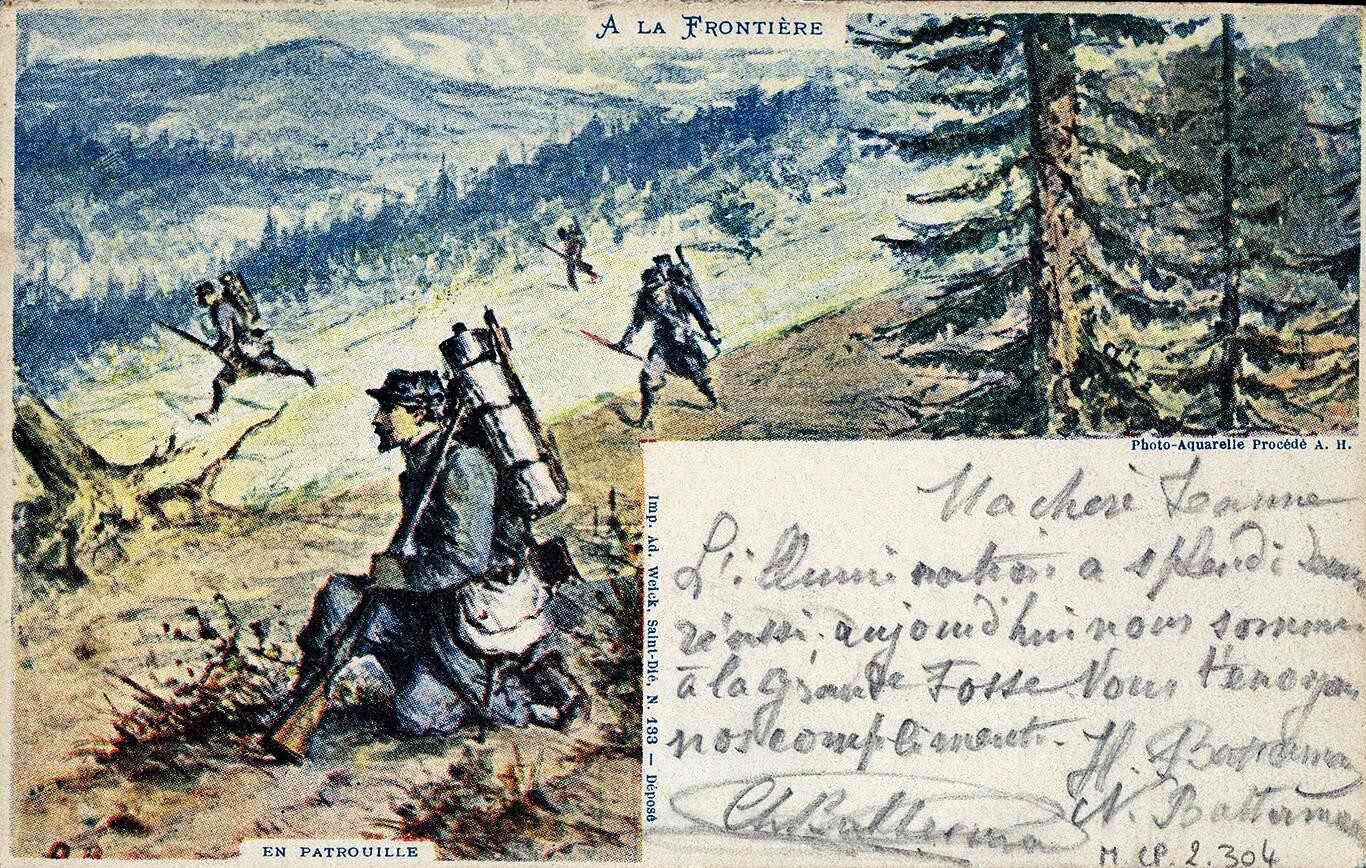 A LA FRONTIÈRE
Photo-Aquarelle Procédé A. H.
Imp. Ad. Weick, Saint-Dié, N. 133 — Déposé
Ma chere Jeanne
L'illumination a splendidement
réussi, aujourd'hui nous sommes
à la grande Fosse Nous t'envoyons
nos compliments.
H.
N. Batterman
Ch Batterman
EN PATROUILLE
M. CP. 2. 304